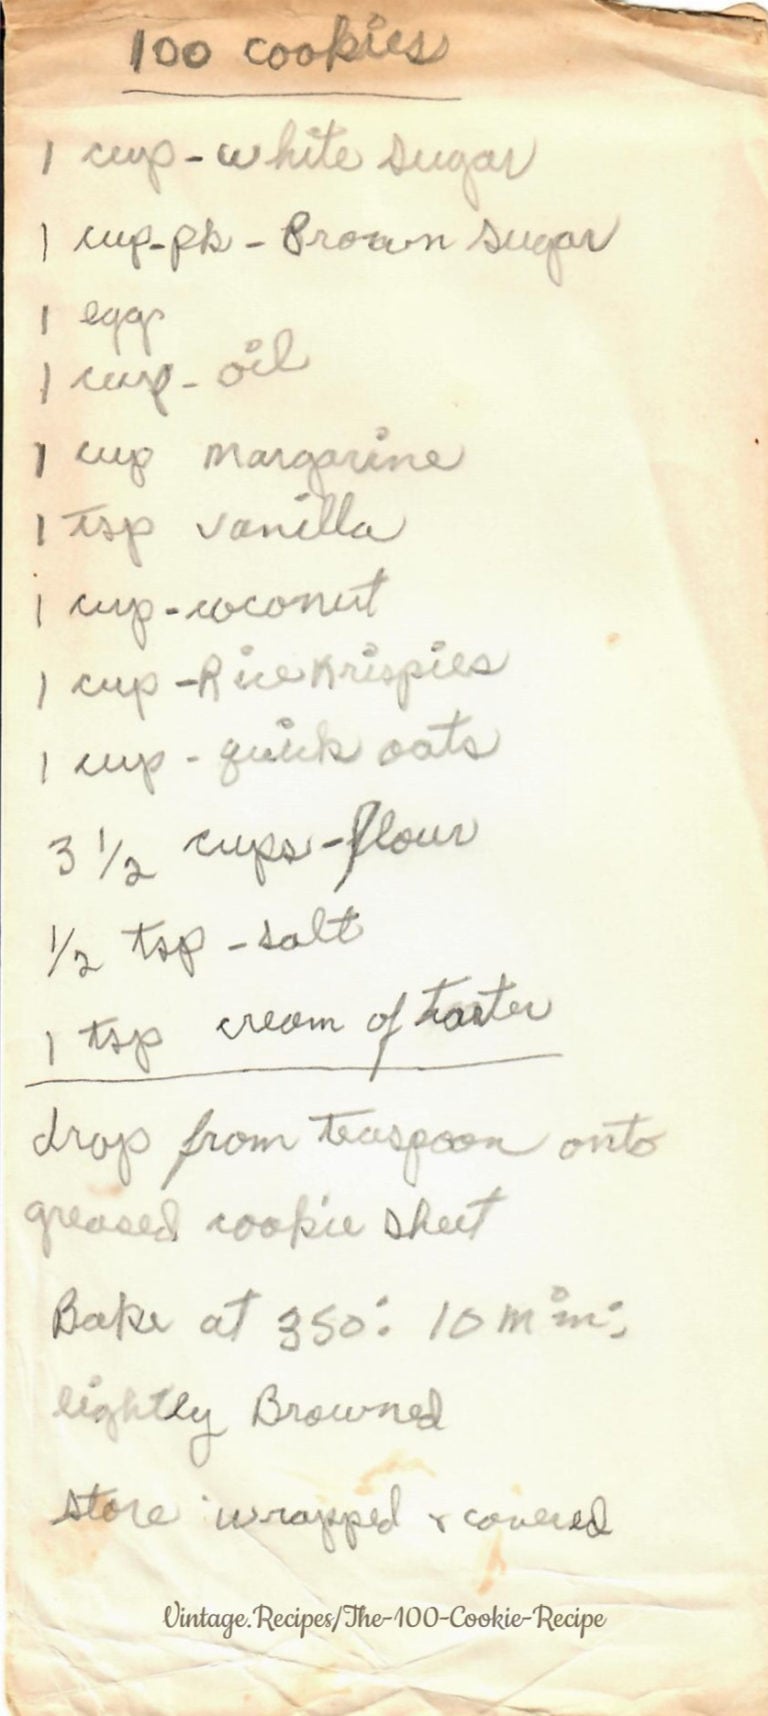 100 cookies
1 cup - white sugar
1 cup-pk - Brown sugar
1 egg
1 cup - oil
1 cup margarine
1 tsp vanilla
1 cup - coconut
1 cup - Rice Krispies
1 cup - quick oats
3 1/2 cups - flour
1/2 tsp - salt
1 tsp cream of tarter
drop from teaspoon onto
greased cookie sheet
Bake at 350: 10 min;
lightly Browned
store wrapped & covered
Vintage.Recipes/The-100-Cookie-Recipe